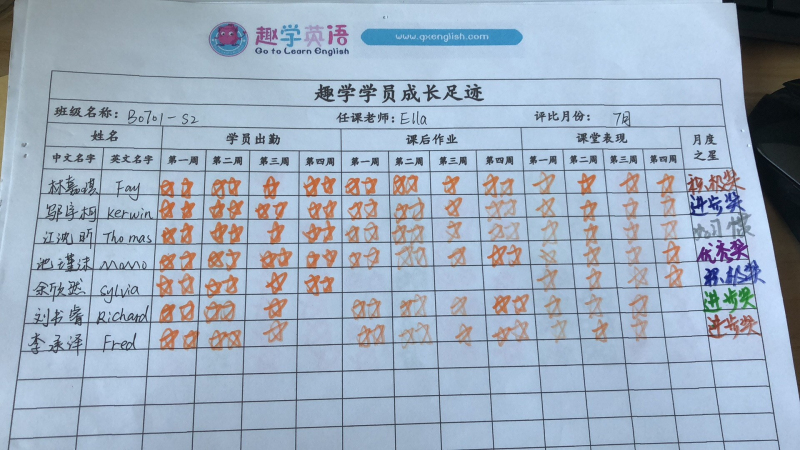 趣学英语
Go to Learn English
www.qxenglish.com
趣学学员成长足迹
班级名称: B0701-S2 任课老师: Ella 评比月份: 7月
姓名 学员出勤 课后作业 课堂表现 月度之星
中文名字 英文名字 第一周 第二周 第三周 第四周 第一周 第二周 第三周 第四周 第一周 第二周 第三周 第四周
林嘉 Fay 积极奖
邹宇柯 Kerwin 进步奖
江沈昕 Thomas
池谨沫 MoMo 优秀奖
余欣然 Sylvia 积极奖
刘书睿 Richard 进步奖
李承泽 Fred 进步奖